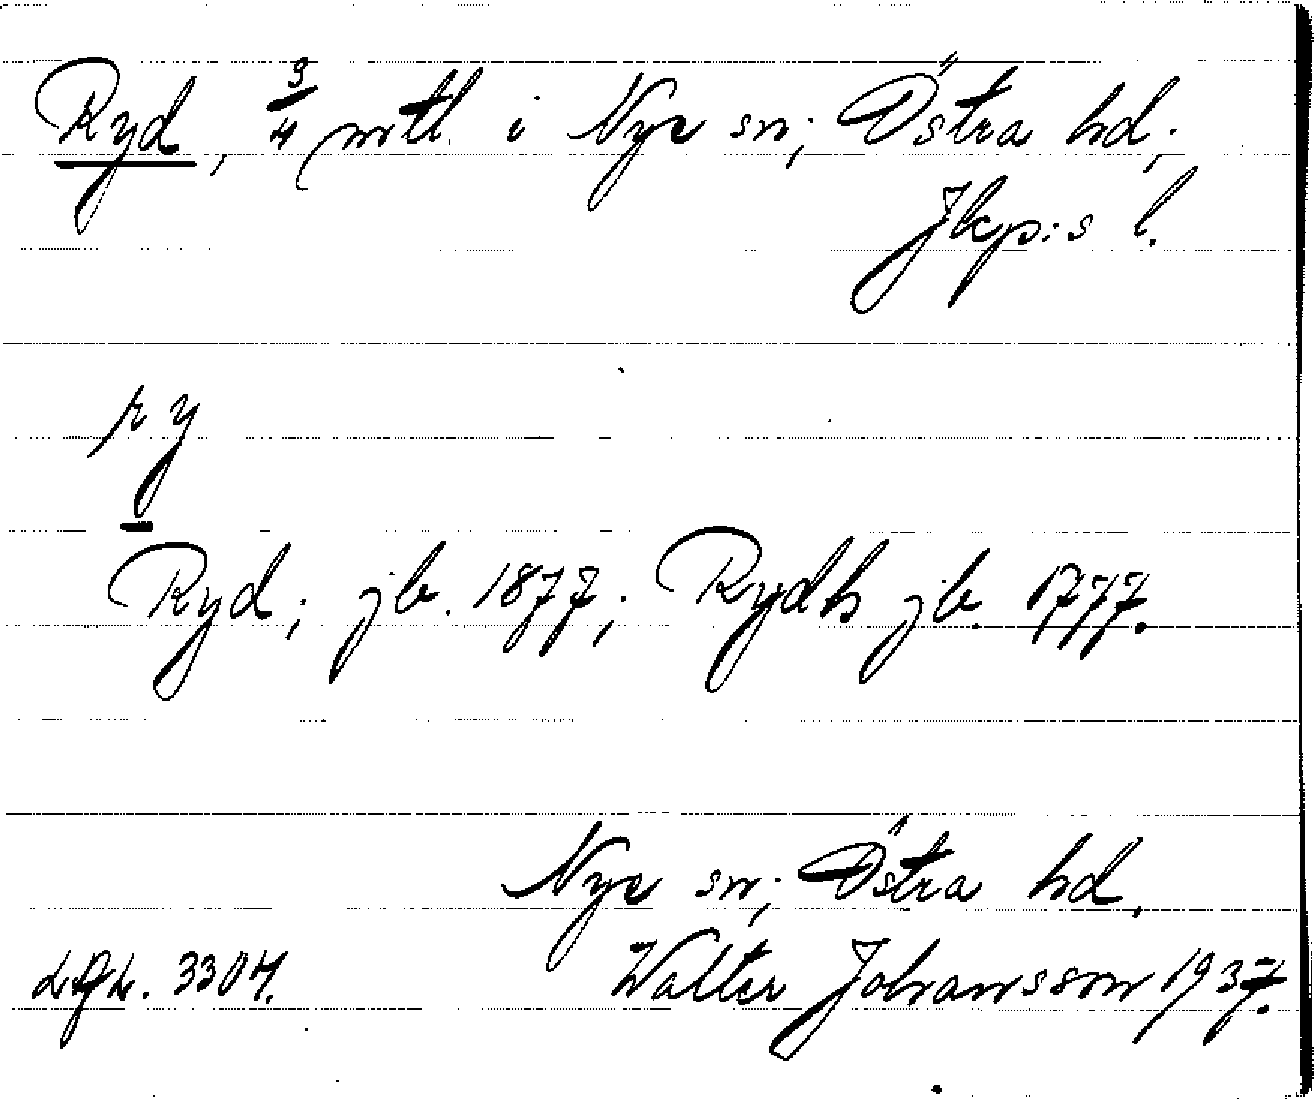 Ryd, 3/4 mtl. i Nye sn; Östra hd;
Jkp:s l.
ry
Ryd; jb. 1877; Rydh jb. 1777.
Nye sn; Östra hd,
3304. Walter Johansson 1937.